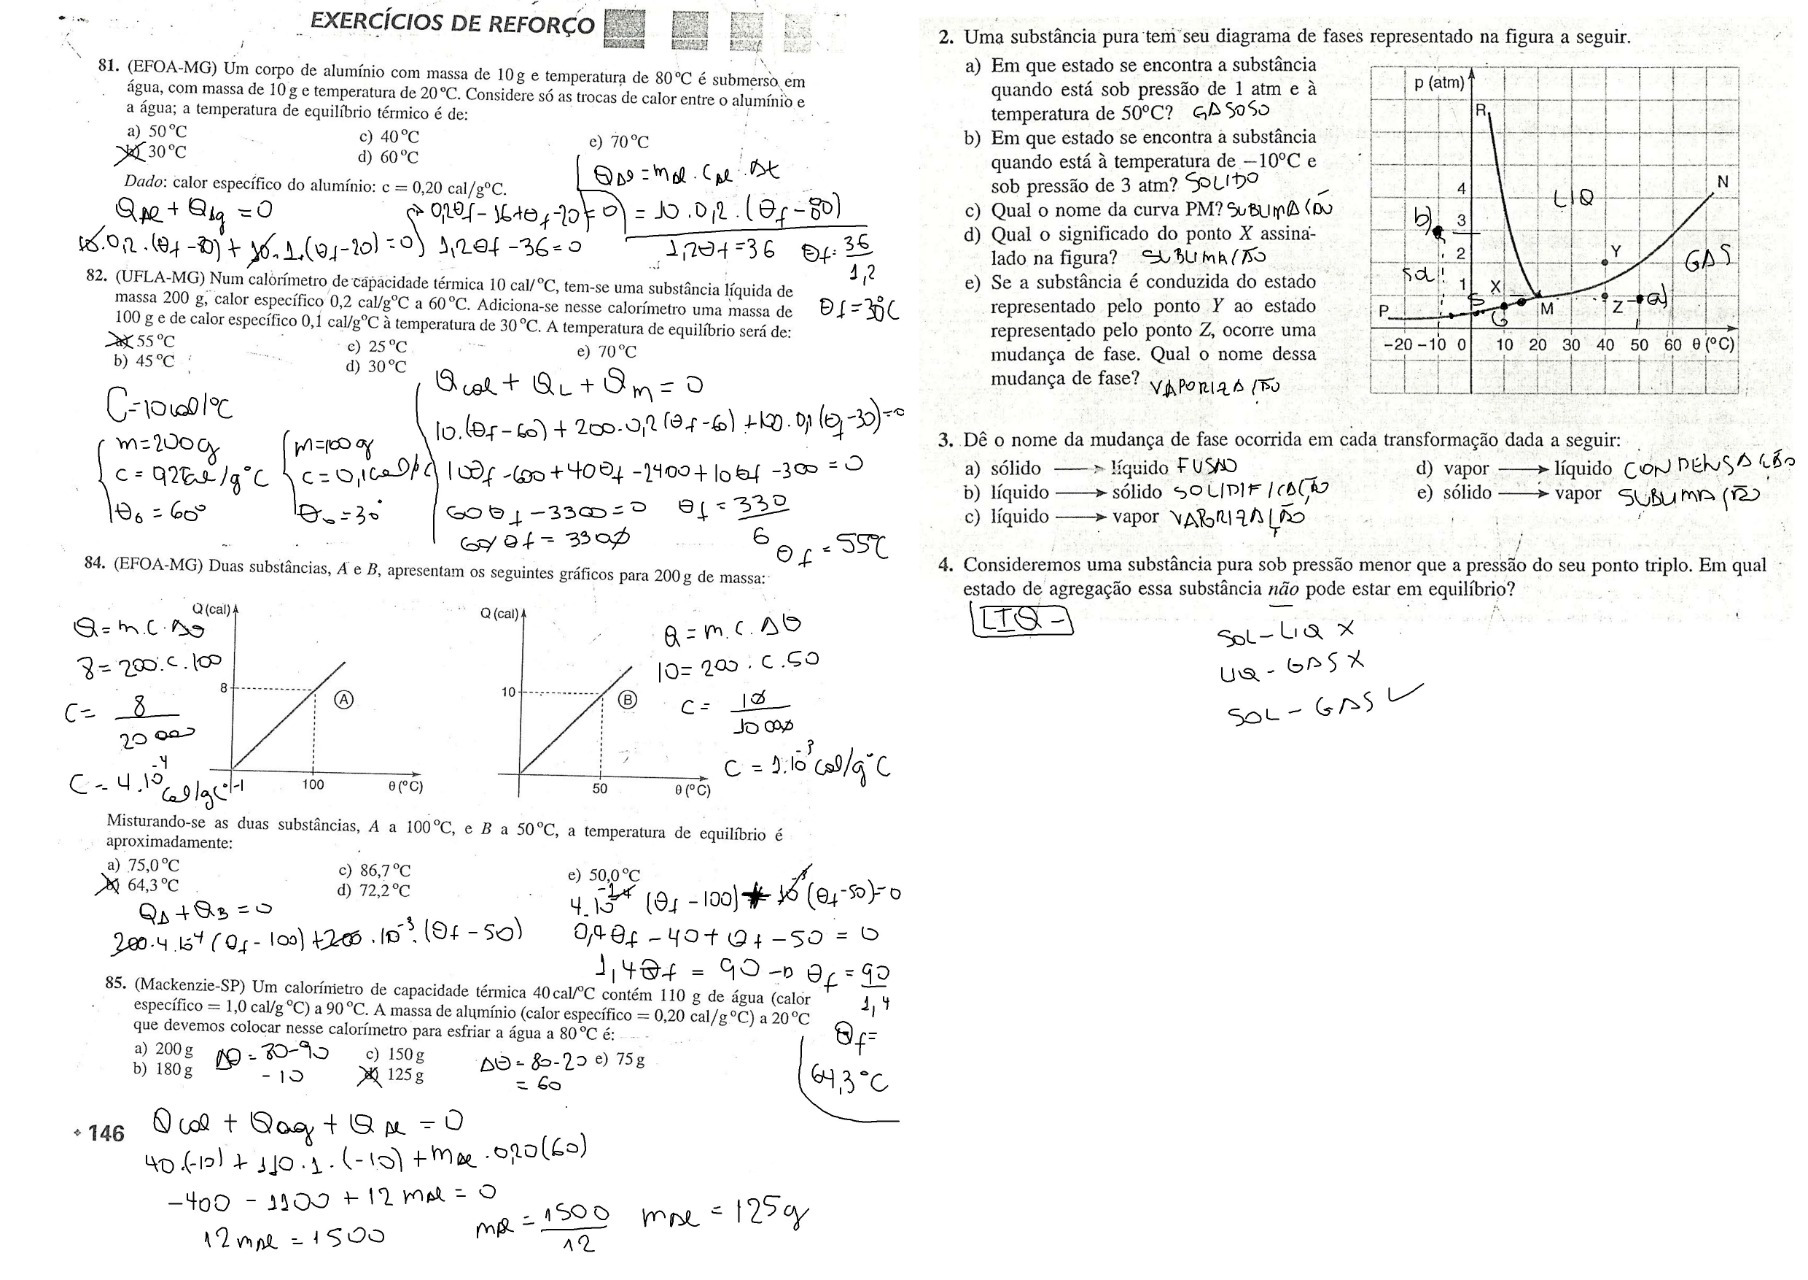 EXERCÍCIOS DE REFORÇO
81. (EFOA-MG) Um corpo de alumínio com massa de 10 g e temperatura de 80 °C é submerso em
água, com massa de 10 g e temperatura de 20 °C. Considere só as trocas de calor entre o alumínio e
a água; a temperatura de equilíbrio térmico é de:
a) 50 °C c) 40 °C e) 70 °C
b) 30 °C d) 60 °C
Dado: calor específico do alumínio: c = 0,20 cal/g°C.
QAl = mAl . cAl . Δt
QAl + QAg = 0
0,2θf - 16 + θf - 20 = 0
= 10 . 0,2 . (θf - 80)
10.0,2 . (θf - 80) + 10.1.(θf - 20) = 0
1,2θf - 36 = 0
1,2θf = 36 θf = 36/1,2
θf = 30°C
82. (UFLA-MG) Num calorímetro de capacidade térmica 10 cal/°C, tem-se uma substância líquida de
massa 200 g, calor específico 0,2 cal/g°C a 60 °C. Adiciona-se nesse calorímetro uma massa de
100 g e de calor específico 0,1 cal/g°C à temperatura de 30 °C. A temperatura de equilíbrio será de:
a) 55 °C c) 25 °C e) 70 °C
b) 45 °C d) 30 °C
C = 10 cal/°C
m = 200g
c = 0,2 cal/g°C
θ0 = 60°
m = 100g
c = 0,1 cal/g°C
θ0 = 30°
Qcal + QL + Qm = 0
10.(θf - 60) + 200.0,2(θf - 60) + 100.0,1(θf - 30) = 0
10θf - 600 + 40θf - 2400 + 10θf - 300 = 0
60θf - 3300 = 0 θf = 330/6
60θf = 3300
θf = 55°C
84. (EFOA-MG) Duas substâncias, A e B, apresentam os seguintes gráficos para 200 g de massa:
Q (cal)
8
A
100
θ (°C)
Q (cal)
10
B
50
θ (°C)
Q = m.c.Δθ
8 = 200.c.100
c = 8/20000
c = 4.10-4 cal/g°C-1
Q = m.c.Δθ
10 = 200.c.50
c = 10/10000
c = 1.10-3 cal/g°C
Misturando-se as duas substâncias, A a 100 °C, e B a 50 °C, a temperatura de equilíbrio é
aproximadamente:
a) 75,0 °C c) 86,7 °C e) 50,0 °C
b) 64,3 °C d) 72,2 °C
QA + QB = 0
200.4.10-4(θf - 100) + 200.10-3.(θf - 50)
4.10-4 (θf - 100) + 10-3 (θf - 50) = 0
0,4θf - 40 + θf - 50 = 0
1,4θf = 90 → θf = 90/1,4
θf =
64,3°C
85. (Mackenzie-SP) Um calorímetro de capacidade térmica 40 cal/°C contém 110 g de água (calor
específico = 1,0 cal/g °C) a 90 °C. A massa de alumínio (calor específico = 0,20 cal/g °C) a 20 °C
que devemos colocar nesse calorímetro para esfriar a água a 80 °C é:
a) 200 g c) 150 g e) 75 g
b) 180 g d) 125 g
Δθ = 80-90
-10
Δθ = 80-20
= 60
146
Qcal + Qag + QAl = 0
40.(-10) + 110.1.(-10) + mAl.0,20(60)
-400 - 1100 + 12 mAl = 0
12 mAl = 1500
mAl = 1500/12
mAl = 125g
2. Uma substância pura tem seu diagrama de fases representado na figura a seguir.
a) Em que estado se encontra a substância
quando está sob pressão de 1 atm e à
temperatura de 50°C? GASOSO
b) Em que estado se encontra a substância
quando está à temperatura de −10°C e
sob pressão de 3 atm? SOLIDO
c) Qual o nome da curva PM? SUBLIMAÇÃO
d) Qual o significado do ponto X assina-
lado na figura? SUBLIMAÇÃO
e) Se a substância é conduzida do estado
representado pelo ponto Y ao estado
representado pelo ponto Z, ocorre uma
mudança de fase. Qual o nome dessa
mudança de fase? VAPORIZAÇÃO
p (atm)
R
4
N
LIQ
b)
3
2
Y
GAS
Sol
1
S
X
G
P
M
Z
a)
−20 −10 0 10 20 30 40 50 60 θ (°C)
3. Dê o nome da mudança de fase ocorrida em cada transformação dada a seguir:
a) sólido → líquido FUSÃO
b) líquido → sólido SOLIDIFICAÇÃO
c) líquido → vapor VAPORIZAÇÃO
d) vapor → líquido CONDENSAÇÃO
e) sólido → vapor SUBLIMAÇÃO
4. Consideremos uma substância pura sob pressão menor que a pressão do seu ponto triplo. Em qual
estado de agregação essa substância não pode estar em equilíbrio?
LIQ -
SOL - LIQ X
LIQ - GAS X
SOL - GAS ✓